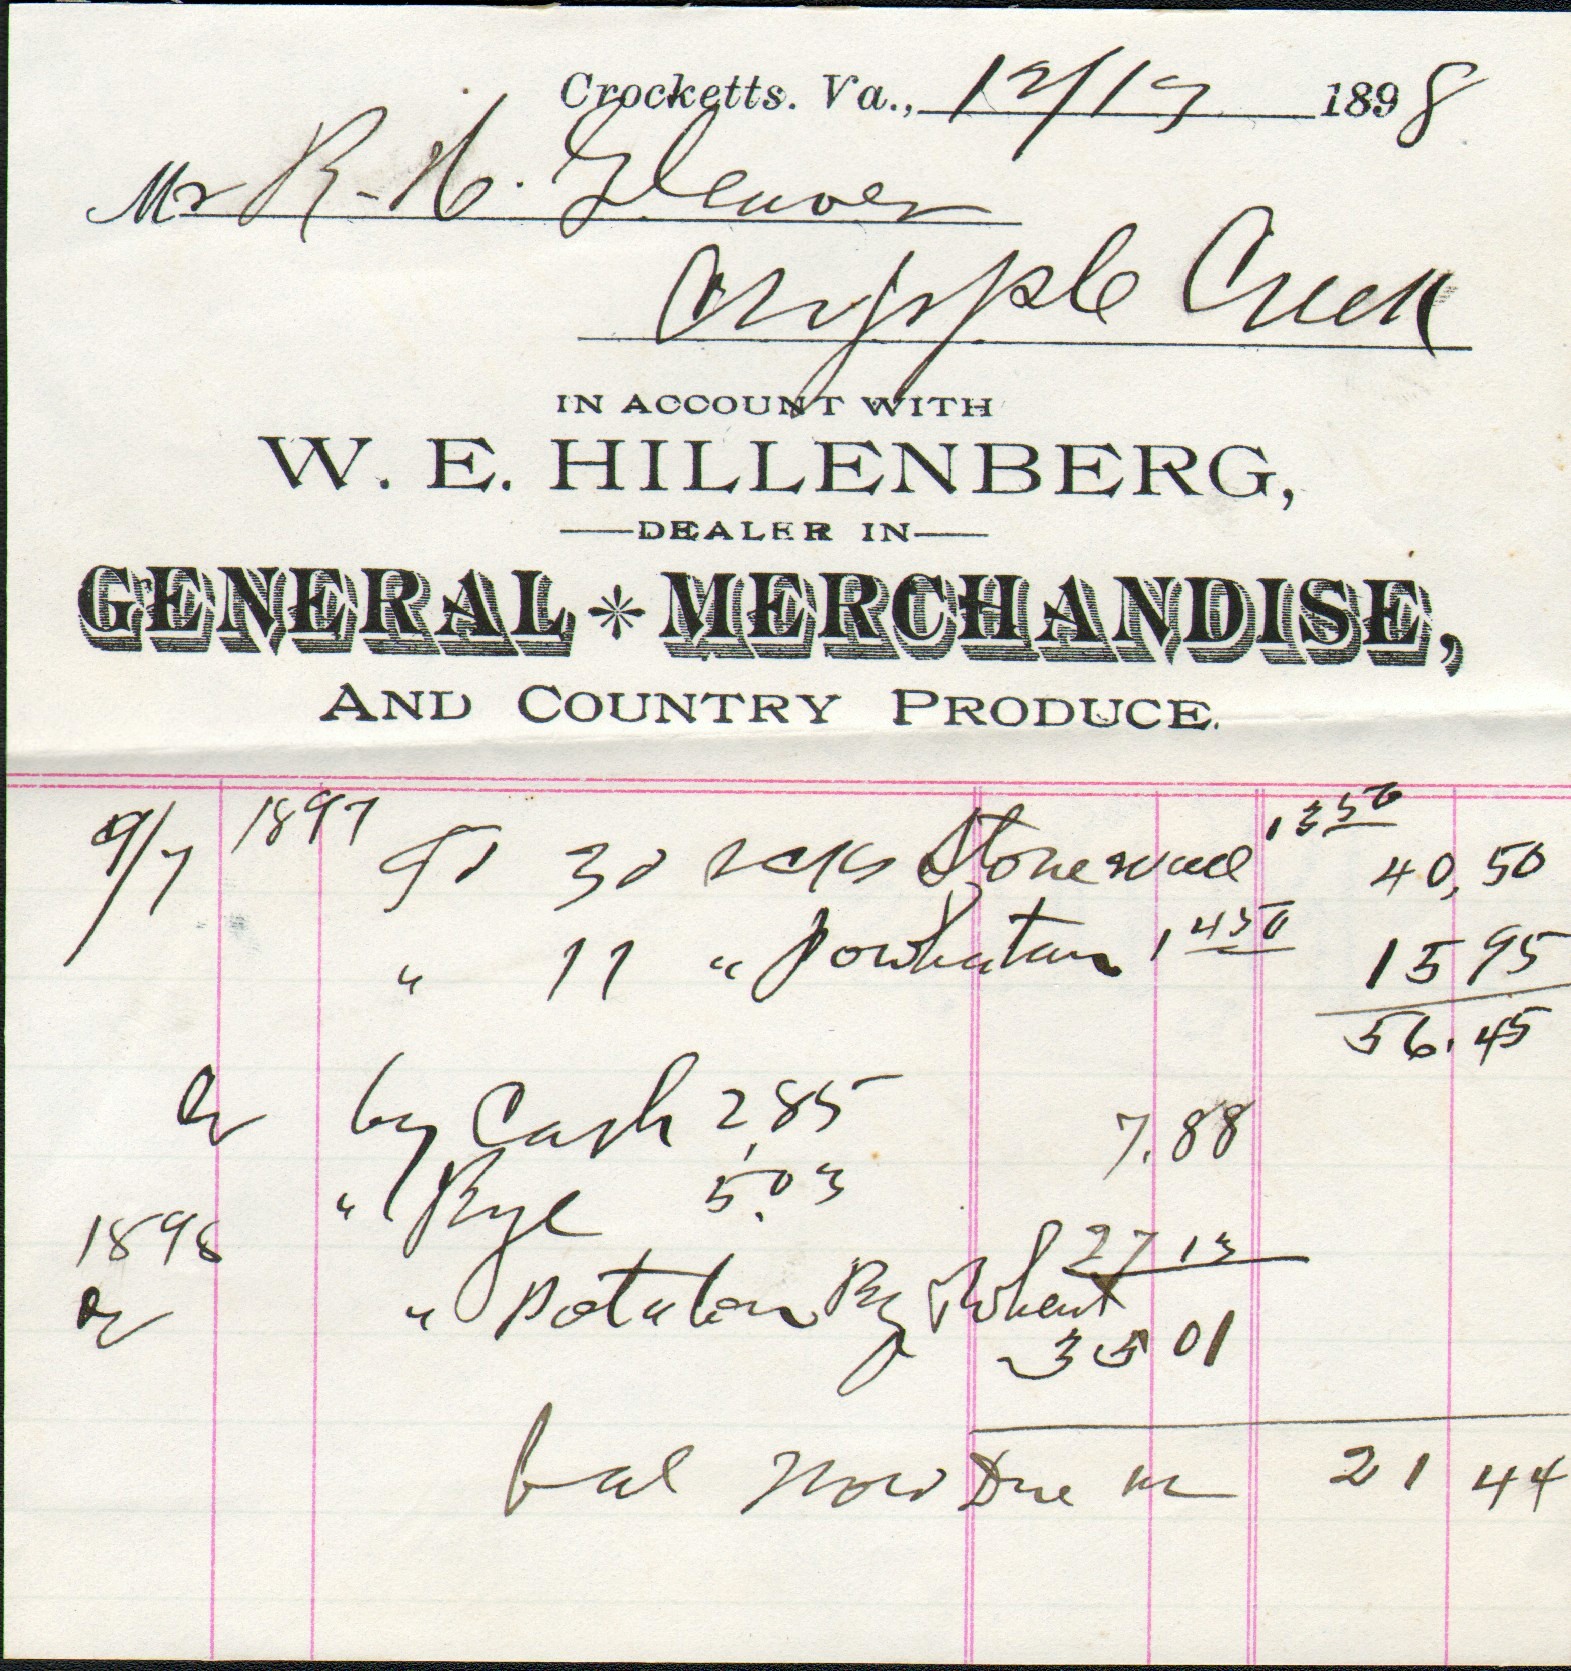 Crocketts. Va., 12/17 1898
Mr R. H. Gleaves
Cripple Creek
IN ACCOUNT WITH
W. E. HILLENBERG,
DEALER IN
GENERAL * MERCHANDISE,
AND COUNTRY PRODUCE.
9/7 1897 To 30 scks Stonewall 1 35 0 40,50
" 11 " Powhatan 1 45 0 15 95
56.45
Cr by Cash 2,85 7.88
" Rye 5.03
1898 27 13
Cr " Potatoes Rye Wheat
35 01
bal now Due me 21 44